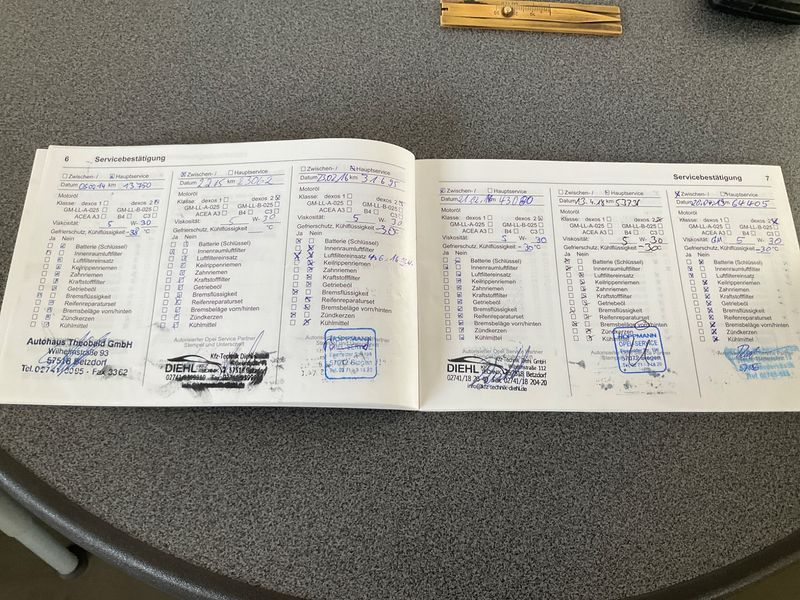 6 Servicebestätigung
Zwischen-/ Hauptservice
Datum 13.750
Motoröl
Klasse: dexos 1 dexos 2
GM-LL-A-025 GM-LL-B-025
ACEA A3 B4 C3
Viskosität: 5 W- 30
Gefrierschutz, Kühlflüssigkeit -38 °C
Ja Nein
Batterie (Schlüssel)
Innenraumluftfilter
Luftfiltereinsatz
Keilrippenriemen
Zahnriemen
Kraftstofffilter
Getriebeöl
Bremsflüssigkeit
Reifenreparaturset
Bremsbeläge vorn/hinten
Zündkerzen
Kühlmittel
Autohaus Theobald GmbH
Wilhelmstraße 93
57518 Betzdorf
Zwischen-/ Hauptservice
Datum km
Motoröl
Klasse: dexos 1 dexos 2
GM-LL-A-025 GM-LL-B-025
ACEA A3 B4 C3
Viskosität: 5 W- 30
Gefrierschutz, Kühlflüssigkeit °C
Ja Nein
Batterie (Schlüssel)
Innenraumluftfilter
Luftfiltereinsatz
Keilrippenriemen
Zahnriemen
Kraftstofffilter
Getriebeöl
Bremsflüssigkeit
Reifenreparaturset
Bremsbeläge vorn/hinten
Zündkerzen
Kühlmittel
Autorisierter Opel Service Partner
Stempel und Unterschrift
DIEHL
Zwischen-/ Hauptservice
Datum 23.02.16 km 31695
Motoröl
Klasse: dexos 1 dexos 2
GM-LL-A-025 GM-LL-B-025
ACEA A3 B4 C3
Viskosität: 5 W- 30
Gefrierschutz, Kühlflüssigkeit
Ja Nein
Batterie (Schlüssel)
Innenraumluftfilter
Luftfiltereinsatz
Keilrippenriemen
Zahnriemen
Kraftstofffilter
Getriebeöl
Bremsflüssigkeit
Reifenreparaturset
Bremsbeläge vorn/hinten
Zündkerzen
Kühlmittel
Servicebestätigung 7
Zwischen-/ Hauptservice
Datum km
Motoröl
Klasse: dexos 1 dexos 2
GM-LL-A-025 GM-LL-B-025
ACEA A3 B4 C3
Viskosität: 5 W- 30
Gefrierschutz, Kühlflüssigkeit -30 °C
Ja Nein
Batterie (Schlüssel)
Innenraumluftfilter
Luftfiltereinsatz
Keilrippenriemen
Zahnriemen
Kraftstofffilter
Getriebeöl
Bremsflüssigkeit
Reifenreparaturset
Bremsbeläge vorn/hinten
Zündkerzen
Kühlmittel
Autorisierter Opel Service Partner
DIEHL
info@kfz-technik-diehl.de
Zwischen-/ Hauptservice
Datum 13.4.18 km
Motoröl
Klasse: dexos 1 dexos 2
GM-LL-A-025 GM-LL-B-025
ACEA A3 B4 C3
Viskosität: 5 W- 30
Gefrierschutz, Kühlflüssigkeit -30 °C
Ja Nein
Batterie (Schlüssel)
Innenraumluftfilter
Luftfiltereinsatz
Keilrippenriemen
Zahnriemen
Kraftstofffilter
Getriebeöl
Bremsflüssigkeit
Reifenreparaturset
Bremsbeläge vorn/hinten
Zündkerzen
Kühlmittel
HOFFMANN
OPEL-SERVICE
Zwischen-/ Hauptservice
Datum 64405
Motoröl
Klasse: dexos 1 dexos 2
GM-LL-A-025 GM-LL-B-025
ACEA A3 B4 C3
Viskosität: 5 W- 30
Gefrierschutz, Kühlflüssigkeit -30 °C
Ja Nein
Batterie (Schlüssel)
Innenraumluftfilter
Luftfiltereinsatz
Keilrippenriemen
Zahnriemen
Kraftstofffilter
Getriebeöl
Bremsflüssigkeit
Reifenreparaturset
Bremsbeläge vorn/hinten
Zündkerzen
Kühlmittel